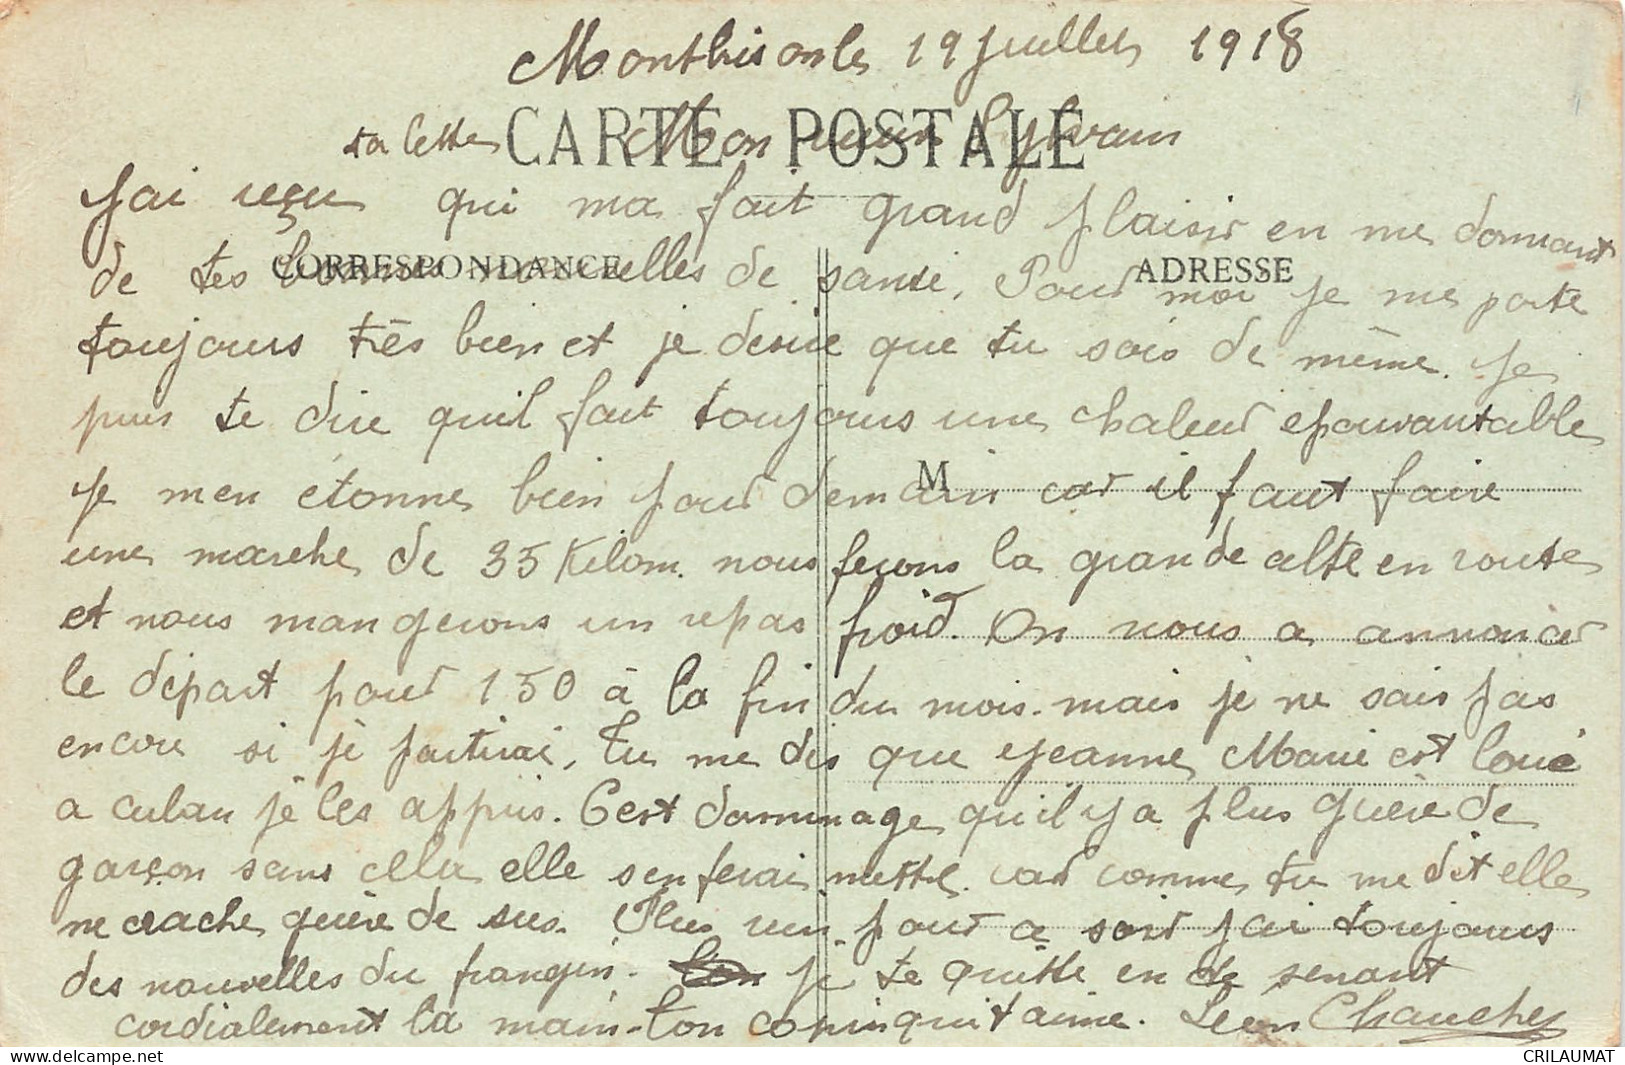 Montbrison le 19 juillet 1918
CARTE POSTALE
Mon vieux Sylvain
ta lettre
J'ai reçu qui ma fait grand plaisir en me donnant
CORRESPONDANCE
ADRESSE
de tes bonnes nouvelles de santé. Pour moi je me porte
toujours très bien et je désire que tu sois de même. Je
puis te dire quil fait toujours une chaleur epouvantable
M
Je men étonne bien pour demain car il faut faire
une marche de 35 Kilom. nous ferons la grande alte en route
et nous mangerons un repas froid. On nous a annoncer
le départ pour 150 à la fin du mois. mais je ne sais pas
encore si je partirai. Tu me dis que Jeanne Marie est loué
a culan je les appris. C'est dommage qu'il y a plus guère de
garçon sans cella elle sen ferai mettre. car comme tu me dit elle
ne crache guère de sus. Plus rien pour ce soir j'ai toujours
des nouvelles du frangin. je te quitte en te serrant
cordialement la main. ton copin qui t'aime. Léon Chauchey
CRILAUMAT